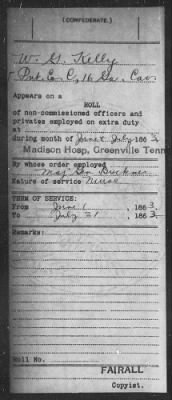 (CONFEDERATE.)
W. G. Kelly
Pvt Co. C, 16 Ga. Cav.
Appears on a
ROLL
of non-commissioned officers and
privates employed on extra duty
at
during month of June & July 1863.
Madison Hosp, Greenville Tenn
By whose order employed
Maj Gen Buckner
Nature of service Nurse
TERM OF SERVICE:
From June 1, 1863.
To July 31, 1863.
Remarks:
Roll No.
FAIRALL
Copyist.